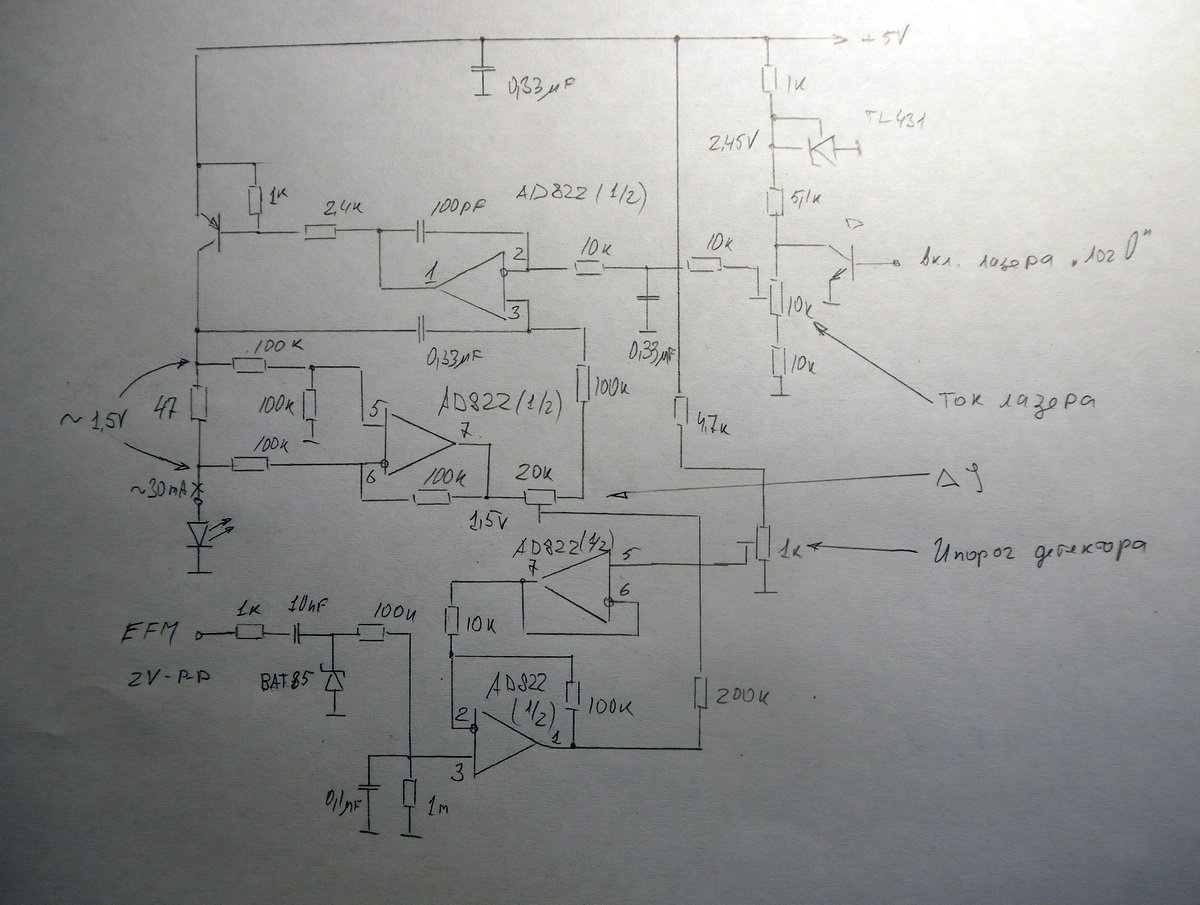 +5V
0,33µF
1к
TL431
2,45V
5,1к
Вкл. лазера „лог 0"
1к
2,4к
100pF
AD822 (1/2)
1
2
3
10к
10к
10к
10к
0,33µF
0,33µF
Ток лазера
100к
47
~1,5V
100к
100к
AD822 (1/2)
5
6
7
100к
100к
1,5V
20к
4,7к
~30mA
AD822 (1/2)
7
5
6
1к
порог детектора
EFM
2V-P-P
1к
10nF
100к
BAT85
10к
AD822
(1/2)
2
3
1
100к
200к
0,1µF
1m